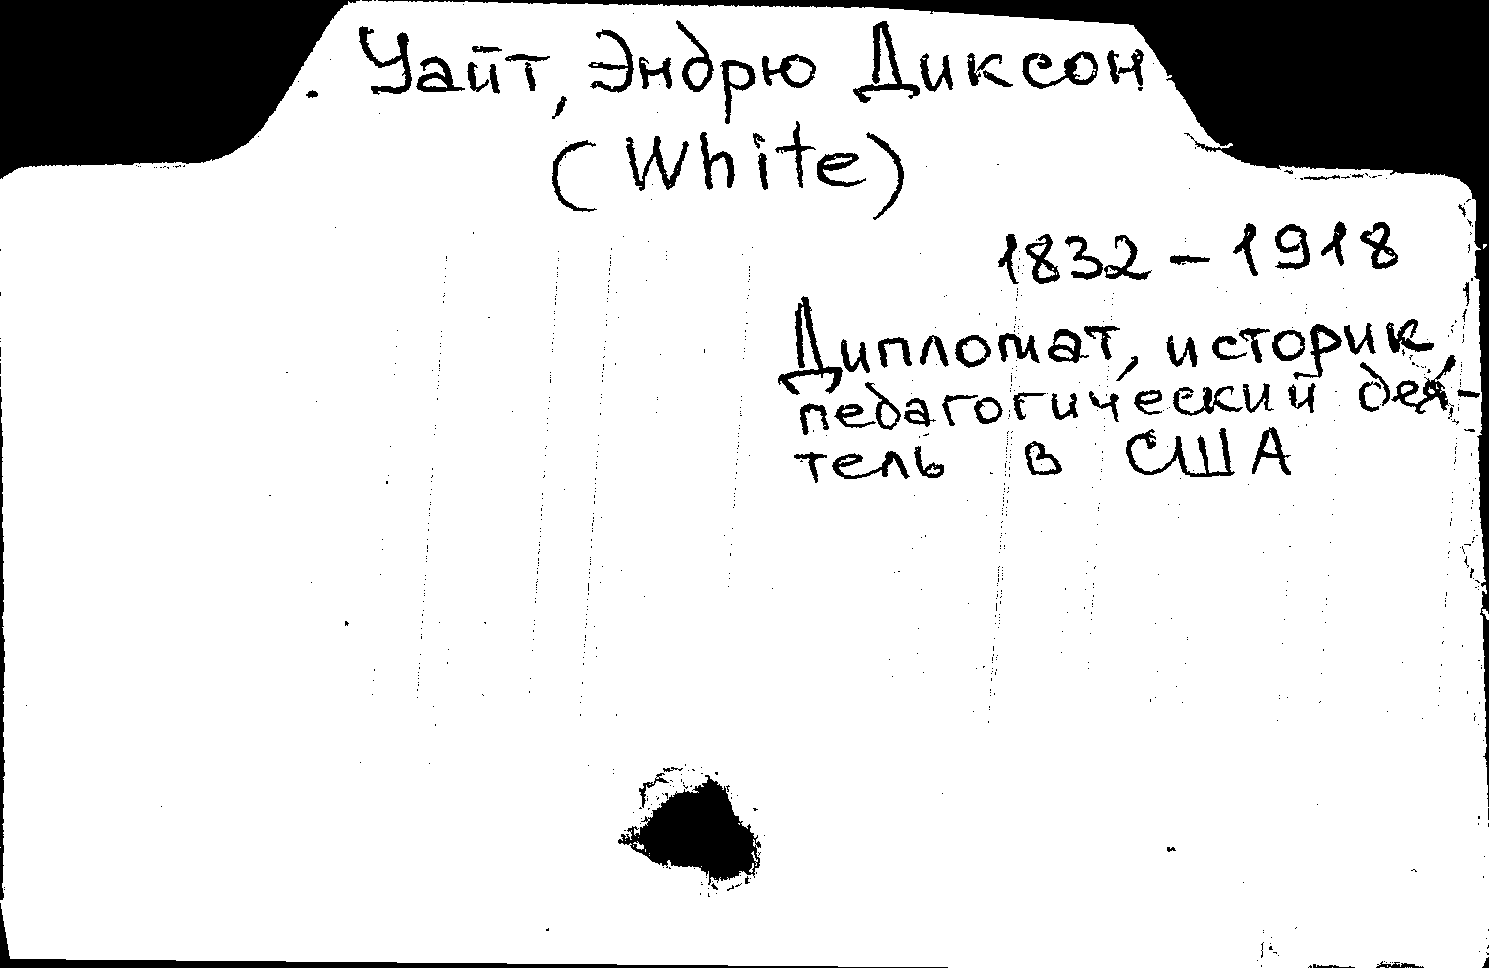 Уайт, Эндрю Диксон
(White)
1832 – 1918
Дипломат, историк,
педагогический дея-
тель в США